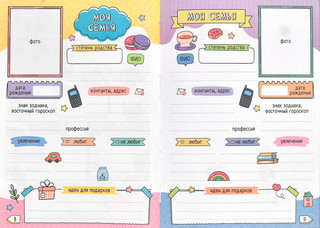 МОЯ
СЕМЬЯ
фото
степень родства
ФИО
дата
рождения
контакты, адрес
знак зодиака,
восточный гороскоп
профессия
увлечения
любит
не любит
идеи для подарков
8
МОЯ СЕМЬЯ
фото
степень родства
ФИО
дата
рождения
контакты, адрес
знак зодиака,
восточный гороскоп
профессия
увлечения
любит
не любит
идеи для подарков
9